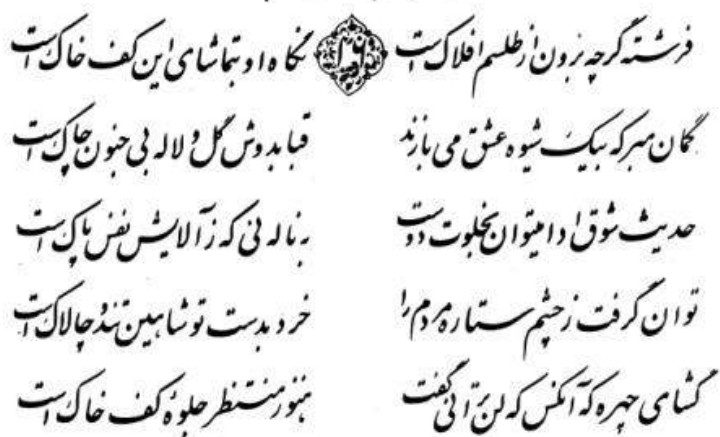 فرشته گرچه برون از طلسم افلاک است ۲۶ نگاه او بتماشای این کف خاک است
گمان مبر که بیک شیوه عشق می بازند قبا بدوش گل و لاله بی جنون چاک است
حدیث شوق ادا میتوان بخلوت دوست بناله ئی که ز آلایش نفس پاک است
توان گرفت ز چشم ستاره مردم را خرد بدست تو شاهین تند و چالاک است
گشای چهره که آنکس که لن ترانی گفت هنوز منتظر جلوهٔ کف خاک است